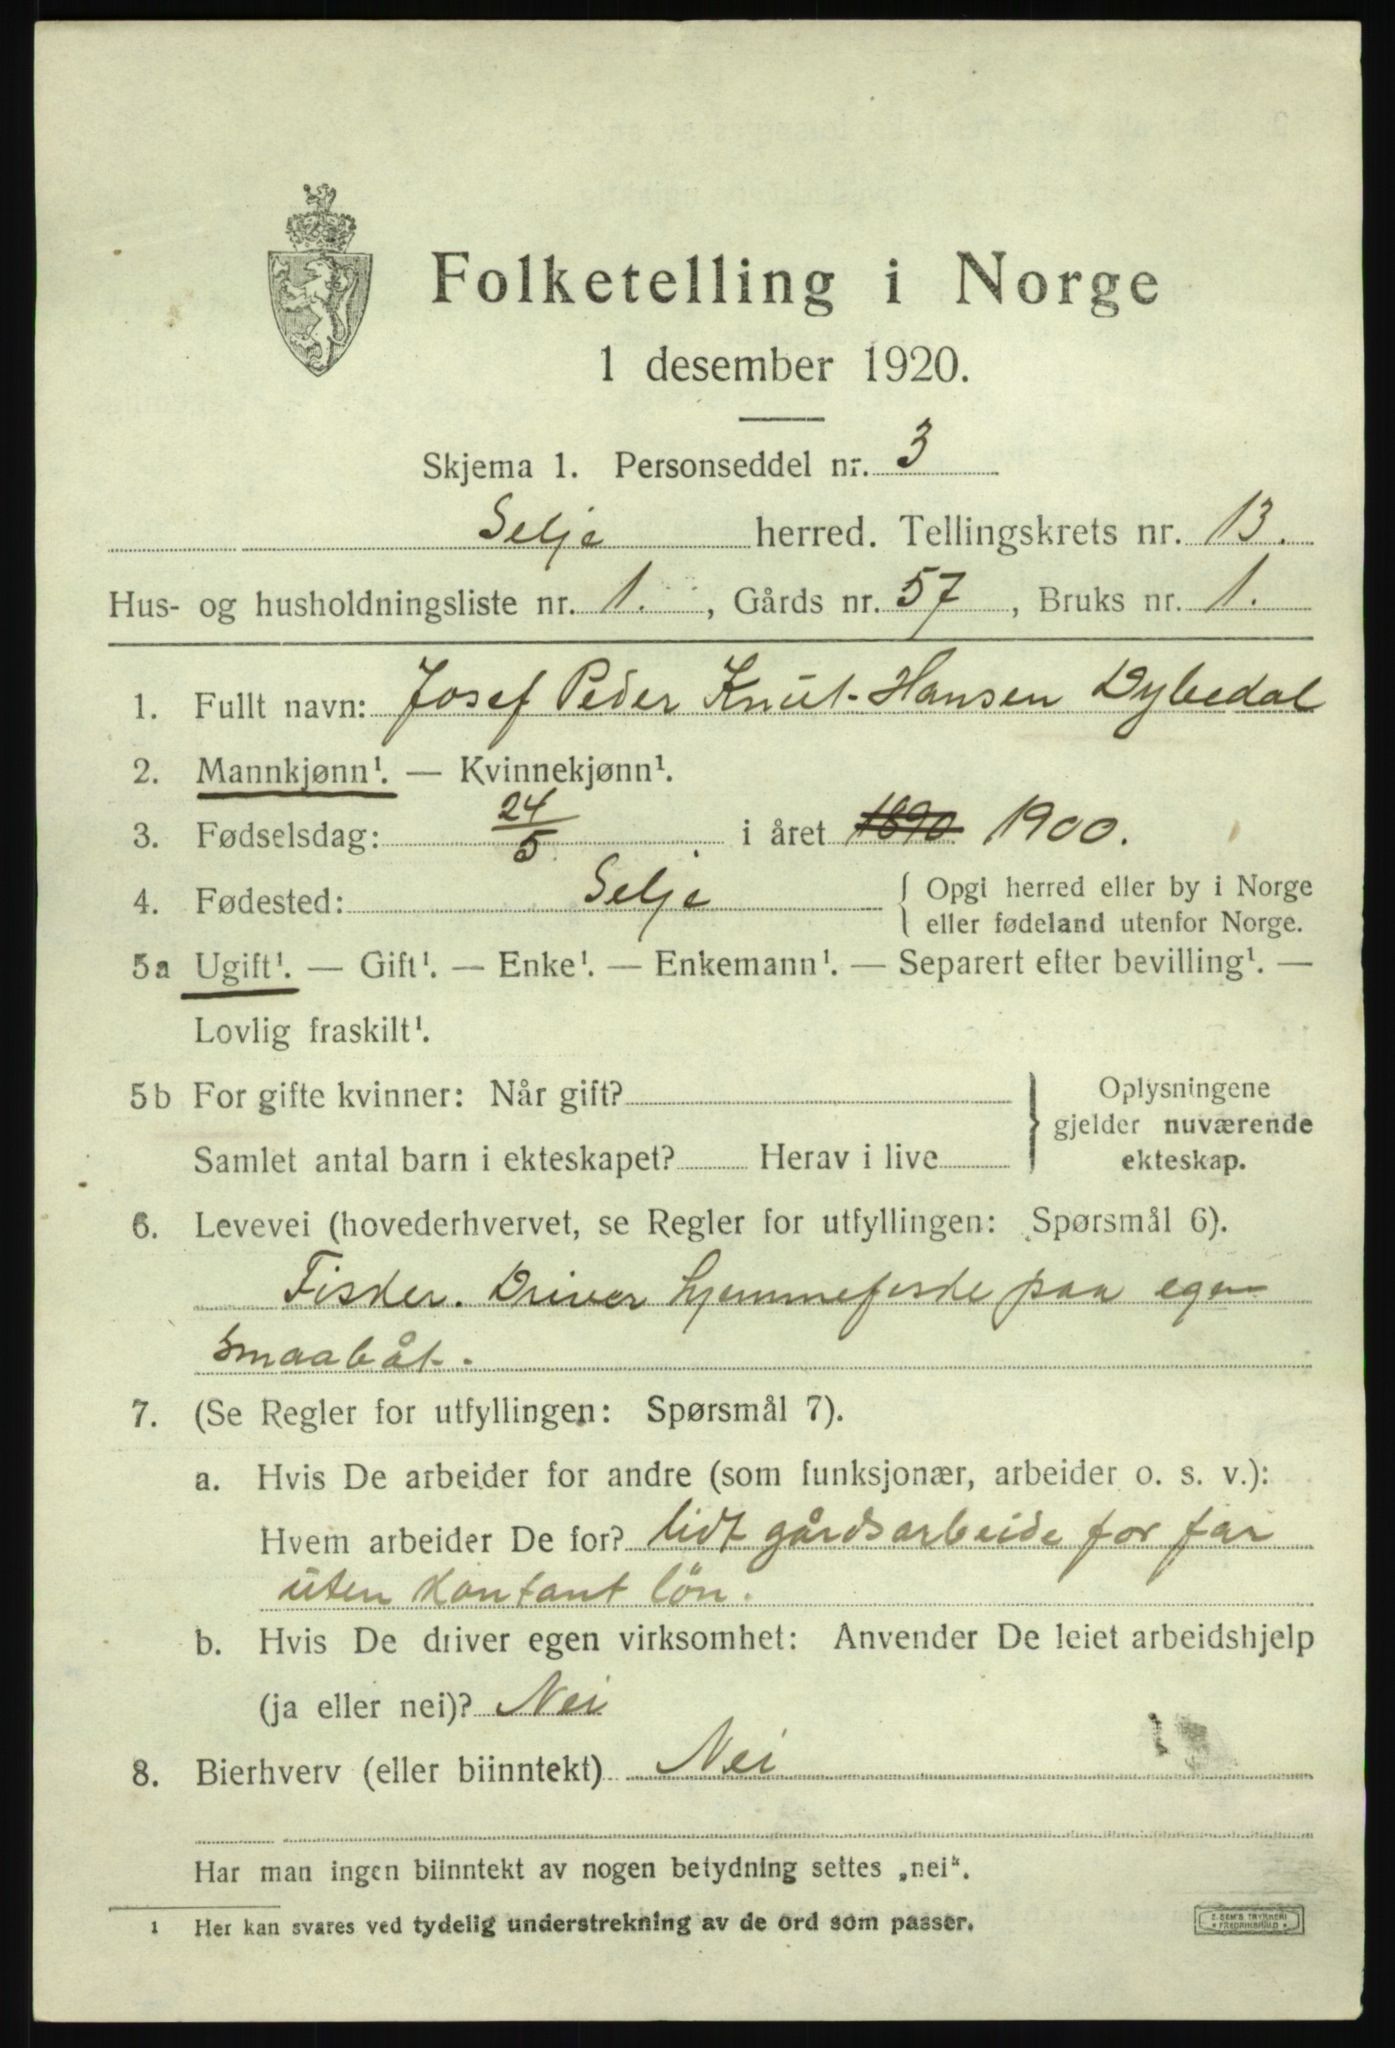 Folketelling i Norge
1 desember 1920.
Skjema 1. Personseddel nr. 3
Selje herred. Tellingskrets nr. 13.
Hus- og husholdningsliste nr. 1. , Gårds nr. 57 , Bruks nr. 1.
1. Fullt navn: Josef Peder Knut-Hansen Dybedal
2. Mannkjønn¹. — Kvinnekjønn¹.
3. Fødselsdag: 24/5 i året 1890 1900.
4. Fødested: Selje { Opgi herred eller by i Norge
eller fødeland utenfor Norge.
5a Ugift¹. — Gift¹. — Enke¹. — Enkemann¹. — Separert efter bevilling¹. —
Lovlig fraskilt¹.
5b For gifte kvinner: Når gift? } Oplysningene
gjelder nuværende
Samlet antal barn i ekteskapet? Herav i live ekteskap.
6. Levevei (hovederhvervet, se Regler for utfyllingen: Spørsmål 6).
Fisker. Driver hjemmefiske paa egen
smaabåt.
7. (Se Regler for utfyllingen: Spørsmål 7).
a. Hvis De arbeider for andre (som funksjonær, arbeider o. s. v.):
Hvem arbeider De for? lidt gårdsarbeide for far
uten kontant løn.
b. Hvis De driver egen virksomhet: Anvender De leiet arbeidshjelp
(ja eller nei)? Nei
8. Bierhverv (eller biinntekt) Nei
Har man ingen biinntekt av nogen betydning settes „nei“.
¹ Her kan svares ved tydelig understrekning av de ord som passer.
E. SEM'S TRYKKERI
FREDRIKSHALD